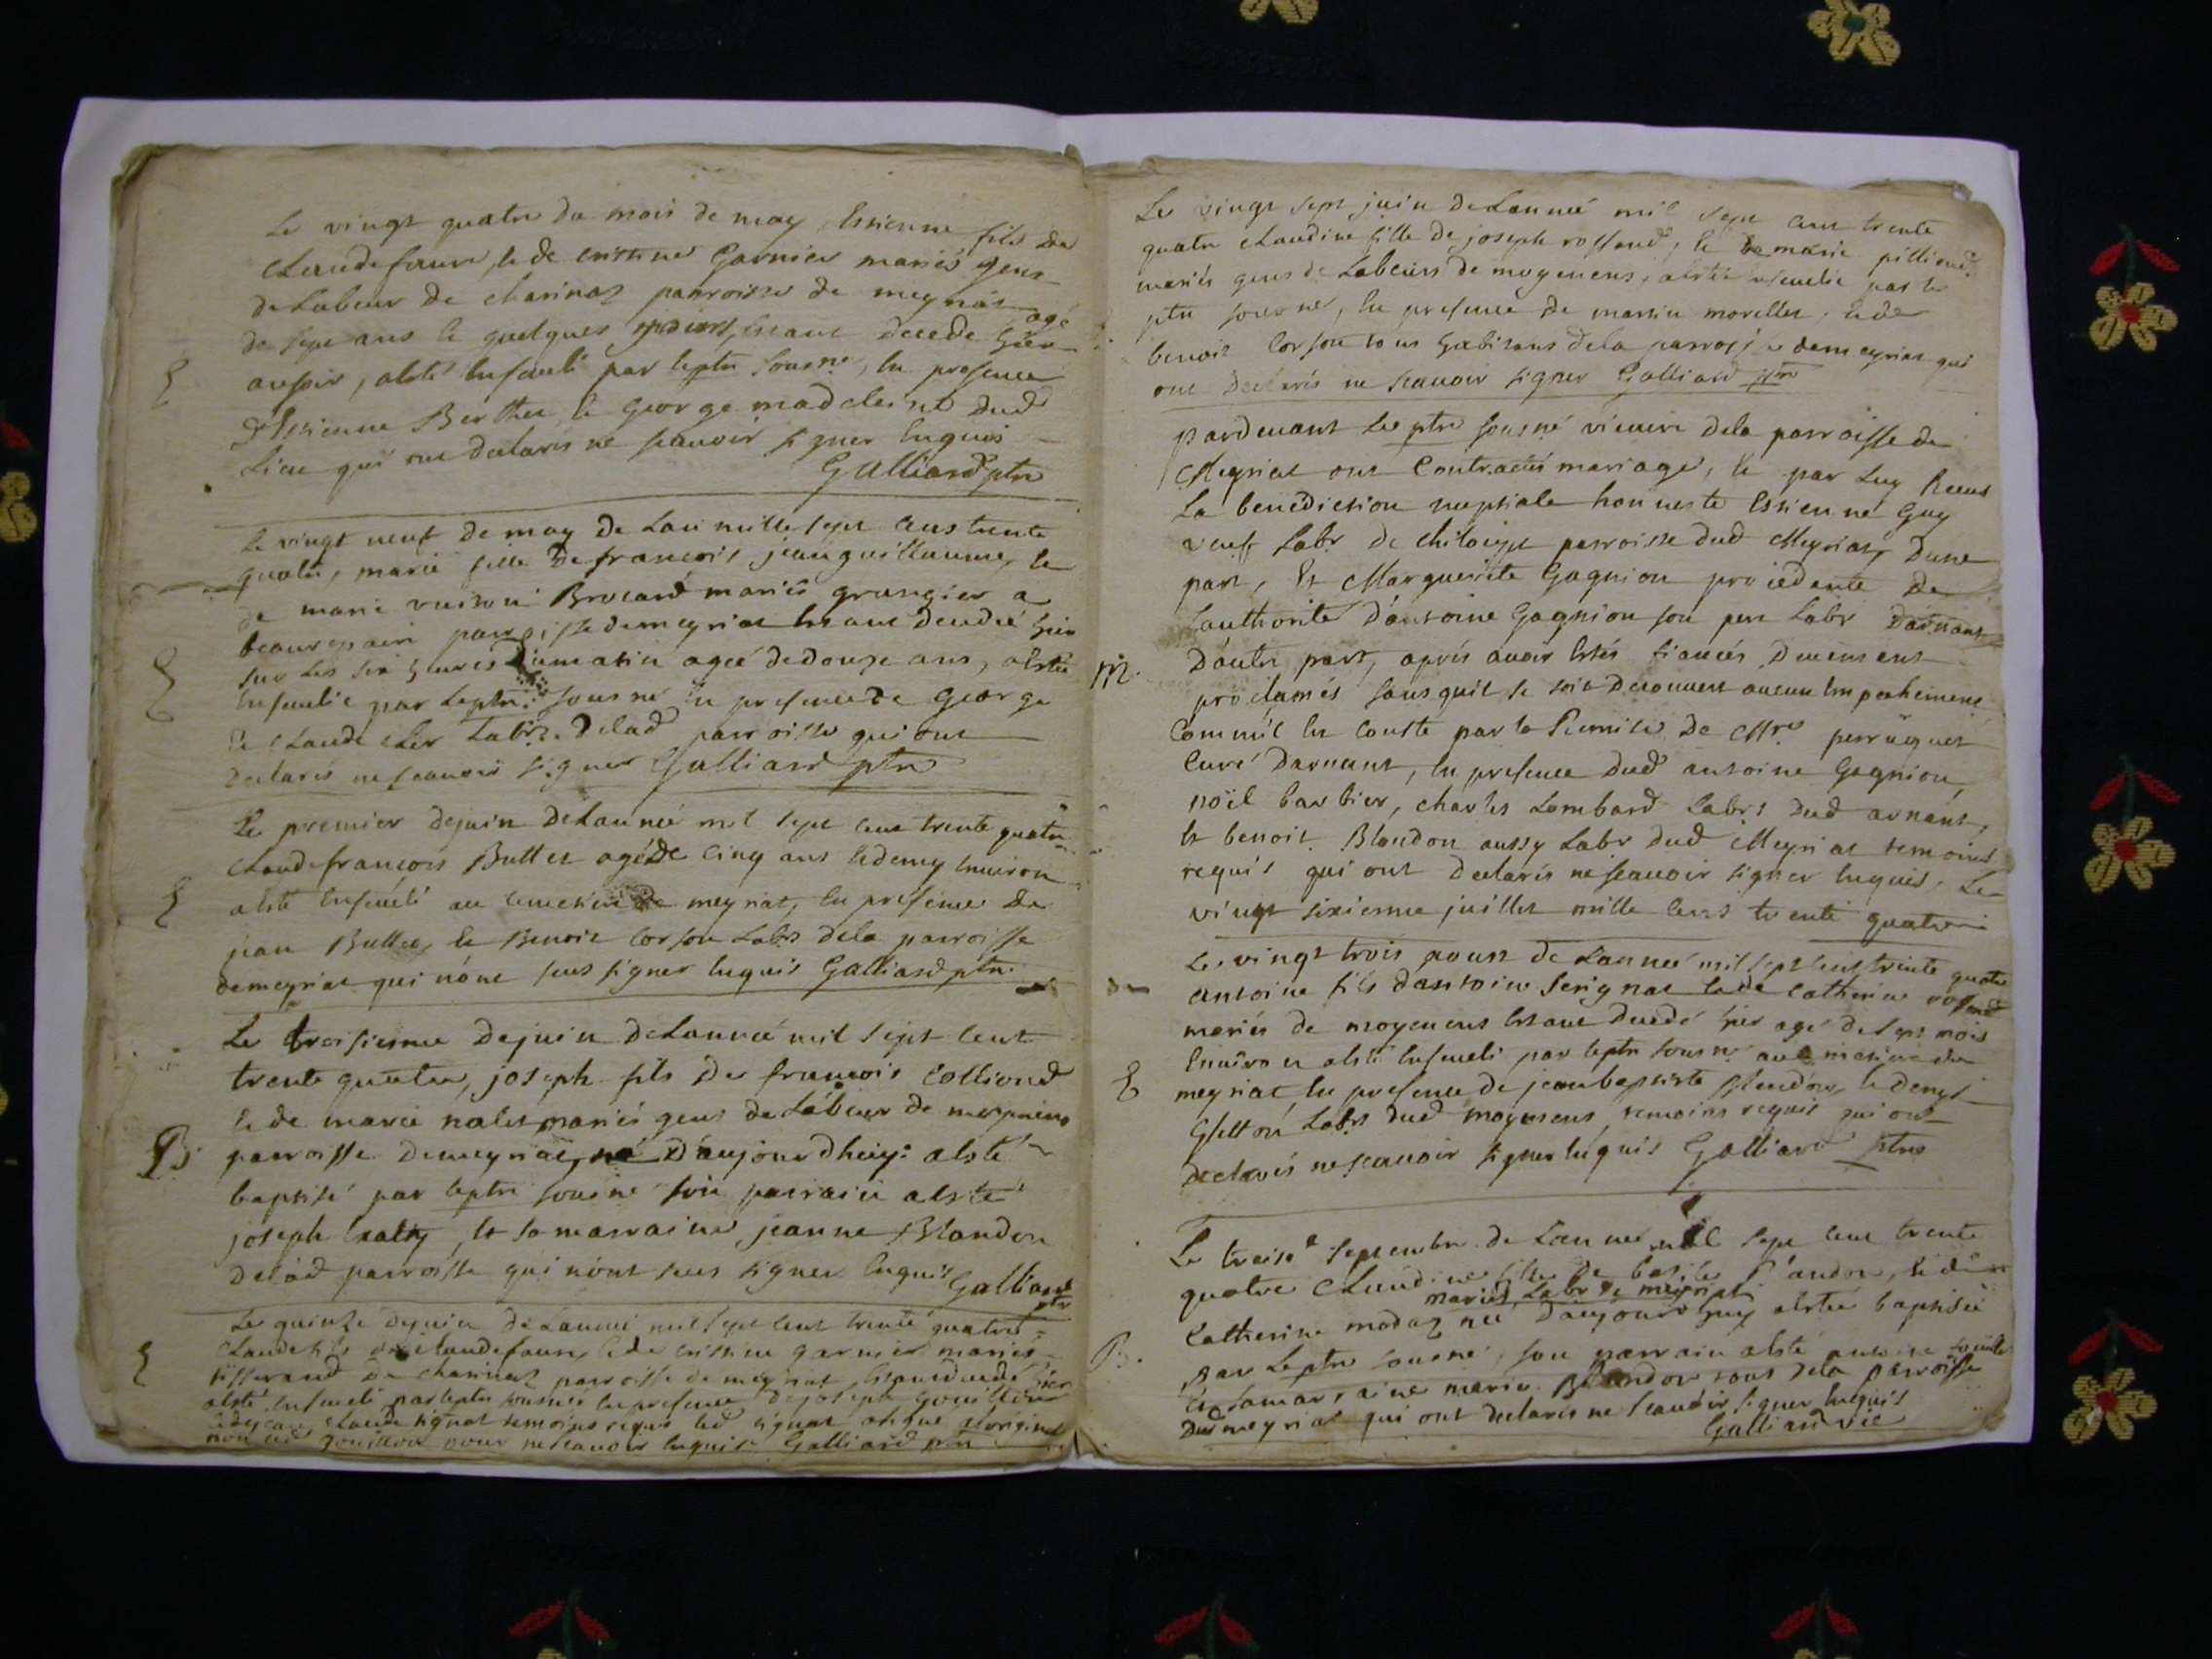 Le vingt quatre du mois de may Estienne fils de
Claude faure, & de Cristine Garnier mariés gens
de Labeur de charinas parroisse de meyrias agé
de sept ans & quelques estant decede hier
au soir, a esté Enseveli par leptre sousne, En presence
d'Estienne Berthet, & George madeleine dud
Lieu qui ont declarés ne scavoir signer Enquis
Galliard ptre
Le vingt neuf de may de Lan mille sept Cens trente
quatre, marie fille de francois jeanguillaume, &
de marie Brocard mariés grangier a
beaurepaire parroisse de meyriat Estant decedée hier
sur Les six heures du matin ageé de douze ans, a Estée
Ensevelie par Leptre sousne En presence de George
& Claude Labrs. delad parroisse qui ont
declarés ne scavoir signer Galliard ptre
Le premier dejuin deLanneé mil sept cent trente quatre
Claudefrancois Buttet agé de cinq ans & demy Environ
a Esté Enséveli au de meyriat, En presence de
jean Buttet, & Benoit Corson Labrs dela parroisse
demeyriat qui n'ont sceus signer Enquis Galliard ptre
Le troisiesme dejuin deLanneé mil sept Cent
trente quatre, joseph fils de francois Colliond
& de marie nalet mariés gens de Labeur de
B. parroisse demeyriat, né D'aujourdhuy a Esté
baptisé par leptre sousné son parrain a Esté
joseph & sa marraine jeanne Blandon
delad parroisse qui n'ont sceus signer Enquis Galliard
ptre
Le quinze dejuin deLanneé mil sept Cent trente quatre
Claude fils de claudefaure, & de Cristine garnier mariés
tisserand de charinas parroisse de meyriat, Estant decedé hier
a Esté Enseveli par leptre sousné En presence de joseph Gouillou
& de jean Claude signat temoins requis led signat loriginal
non led gouillou pour ne scavoir Enquis Galliard ptre
Le vingt sept juin deLanneé mil sept Cent trente
quatre Claudine fille de joseph rossand, & de marie pilliond
mariés gens de Labeurs de moyenens, a Estée Ensevelie par le
ptre sousne, En presence de martin morellet, & de
benoit Corson tous habitans dela parroisse demeyriat qui
ont Declarés ne scavoir signer Galliard ptre
Pardevant Le ptre sousné vicaire dela parroisse de
Meyriat ont Contractés mariage, & par Luy Receus
La benediction nuptiale honneste Estienne Guy
veuf Labr de parroisse dud Meyriat, Dune
part, Et Marguerite Gagnion procédente De
Lauthorité D'antoine Gagnion son pere Labr Darnans
M. D'autre part, aprés avoir Estés fiancés Duement
proclamés sans quil se soit Decouvert aucun Empechement
Comme il En Conste par la Remise De Mre perruquet
Curé Darnans, En presence Dud antoine Gagnion,
noël barbier, charles Lombard Labrs dud arnans,
Et benoit Blondon aussy Labr dud Meyriat temoins
requis qui ont Declarés ne scavoir signer Enquis, Le
vingt sixiesme juillet mille Cens trente quatre
Le vingt trois aoust de Lanneé mil sept Cent trinte quatre
antoine fils dantoine Serignat & de Catherine rossand
mariés de moyenens Estant Decedé hier agé de sept mois
Environ a Esté Enseveli par leptre sousne au de
meyriat, En presence de jeanbaptiste Blondon, & denys
Labrs dud moyenens temoins requis qui ont
Declarés ne scavoir signer Enquis Galliard ptre
Le treise septembre de Lanneé mil sept Cent trente
quatre Claudine fille de & de
mariés Labr de meyriat
Catherine modas neé Daujourdhuy a Estée baptisée
B. par Leptre sousné, son parrain a Esté antoine
& sa marraine marie Blondon tous dela parroisse
Dudmeyriat qui ont declarés ne scavoir signer Enquis
Galliard vic